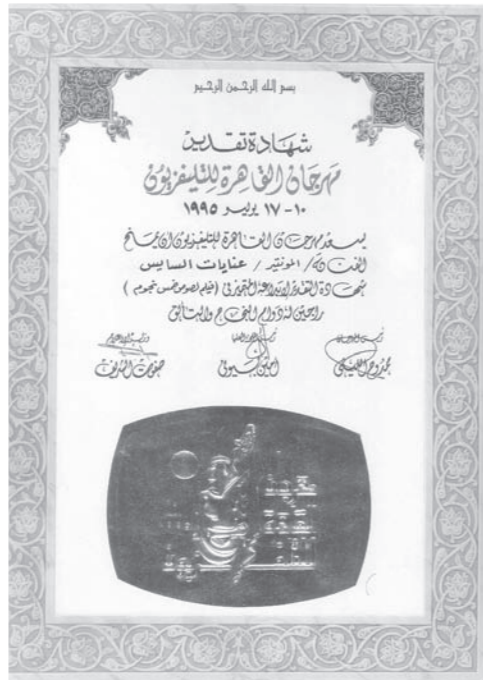 بسم الله الرحمن الرحيم
شهادة تقدير
مهرجان القاهرة للتليفزيون
١٠-١٧ يوليو ١٩٩٥
يسعد مهرجان القاهرة للتليفزيون أن يمنح
الفنانة/ المونتير / عنايات السايس
شهادة التقدير لإبداعه المتميز في (فيلم لصوص خمس نجوم)
راجين له دوام النجاح والتألق
ممدوح الليثي
أمين بسيوني
صفوت الشريف